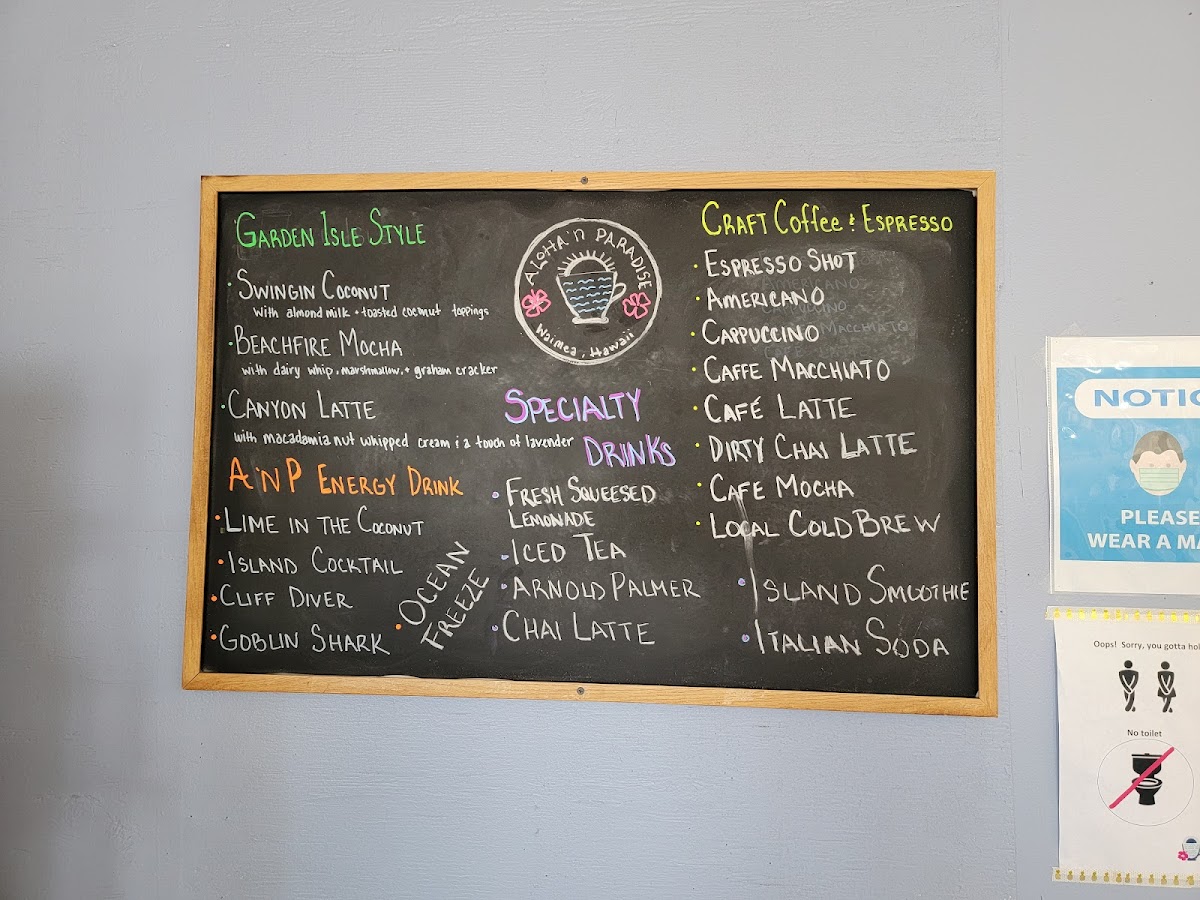 GARDEN ISLE STYLE
SWINGIN COCONUT
with almond milk + toasted coconut toppings
BEACHFIRE MOCHA
with dairy whip, marshmallow, + graham cracker
CANYON LATTE
with macadamia nut whipped cream & a touch of lavender
A'N P ENERGY DRINK
LIME IN THE COCONUT
ISLAND COCKTAIL
CLIFF DIVER
GOBLIN SHARK
OCEAN
FREEZE
ALOHA 'N PARADISE
Waimea, Hawaii
SPECIALTY
DRINKS
FRESH SQUEESED
LEMONADE
ICED TEA
ARNOLD PALMER
CHAI LATTE
CRAFT COFFEE & ESPRESSO
ESPRESSO SHOT
AMERICANO
CAPPUCCINO
CAFFE MACCHIATO
CAFÉ LATTE
DIRTY CHAI LATTE
CAFE MOCHA
LOCAL COLD BREW
ISLAND SMOOTHIE
ITALIAN SODA
NOTIC
PLEASE
WEAR A MA
Oops! Sorry, you gotta hol
No toilet